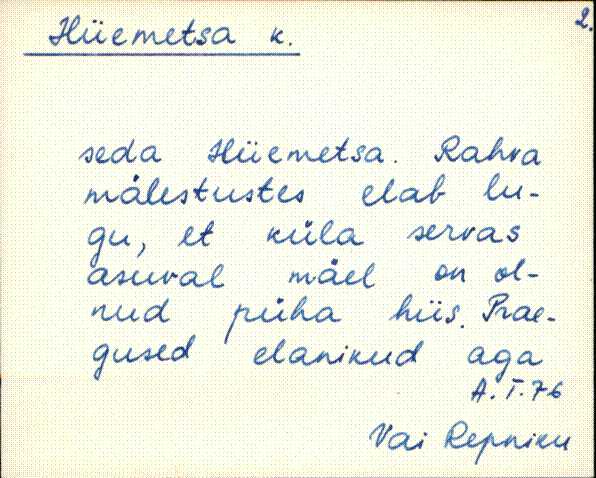 2.
Hiiemetsa k.
seda Hiiemetsa. Rahva
mälestustes elab lu-
gu, et küla servas
asuval mäel on ol-
nud püha hiis. Prae-
gused elanikud aga
A. I. 76
Vai Repniku